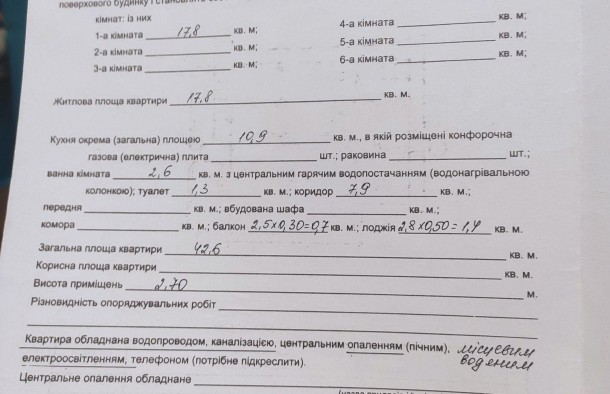 поверхового будинку і становлять
кімнат: із них
1-а кімната 17,8 кв. м; 4-а кімната кв. м;
2-а кімната кв. м; 5-а кімната кв. м;
3-а кімната кв. м; 6-а кімната кв. м;
Житлова площа квартири 17,8 кв. м.
Кухня окрема (загальна) площею 10,9 кв. м., в якій розміщені конфорочна
газова (електрична) плита шт.; раковина шт.;
ванна кімната 2,6 кв. м. з центральним гарячим водопостачанням (водонагрівальною
колонкою); туалет 1,3 кв. м.; коридор 7,9 кв. м.;
передня кв. м.; вбудована шафа кв. м.;
комора кв. м.; балкон 2,5х0,30=0,7 кв. м.; лоджія 2,8х0,50=1,4 кв. м.
Загальна площа квартири 42,6 кв. м.
Корисна площа квартири кв. м.
Висота приміщень 2,70 м.
Різновидність опоряджувальних робіт
Квартира обладнана водопроводом, каналізацією, центральним опаленням (пічним), місцевим
електроосвітленням, телефоном (потрібне підкреслити). водяним
Центральне опалення обладнане